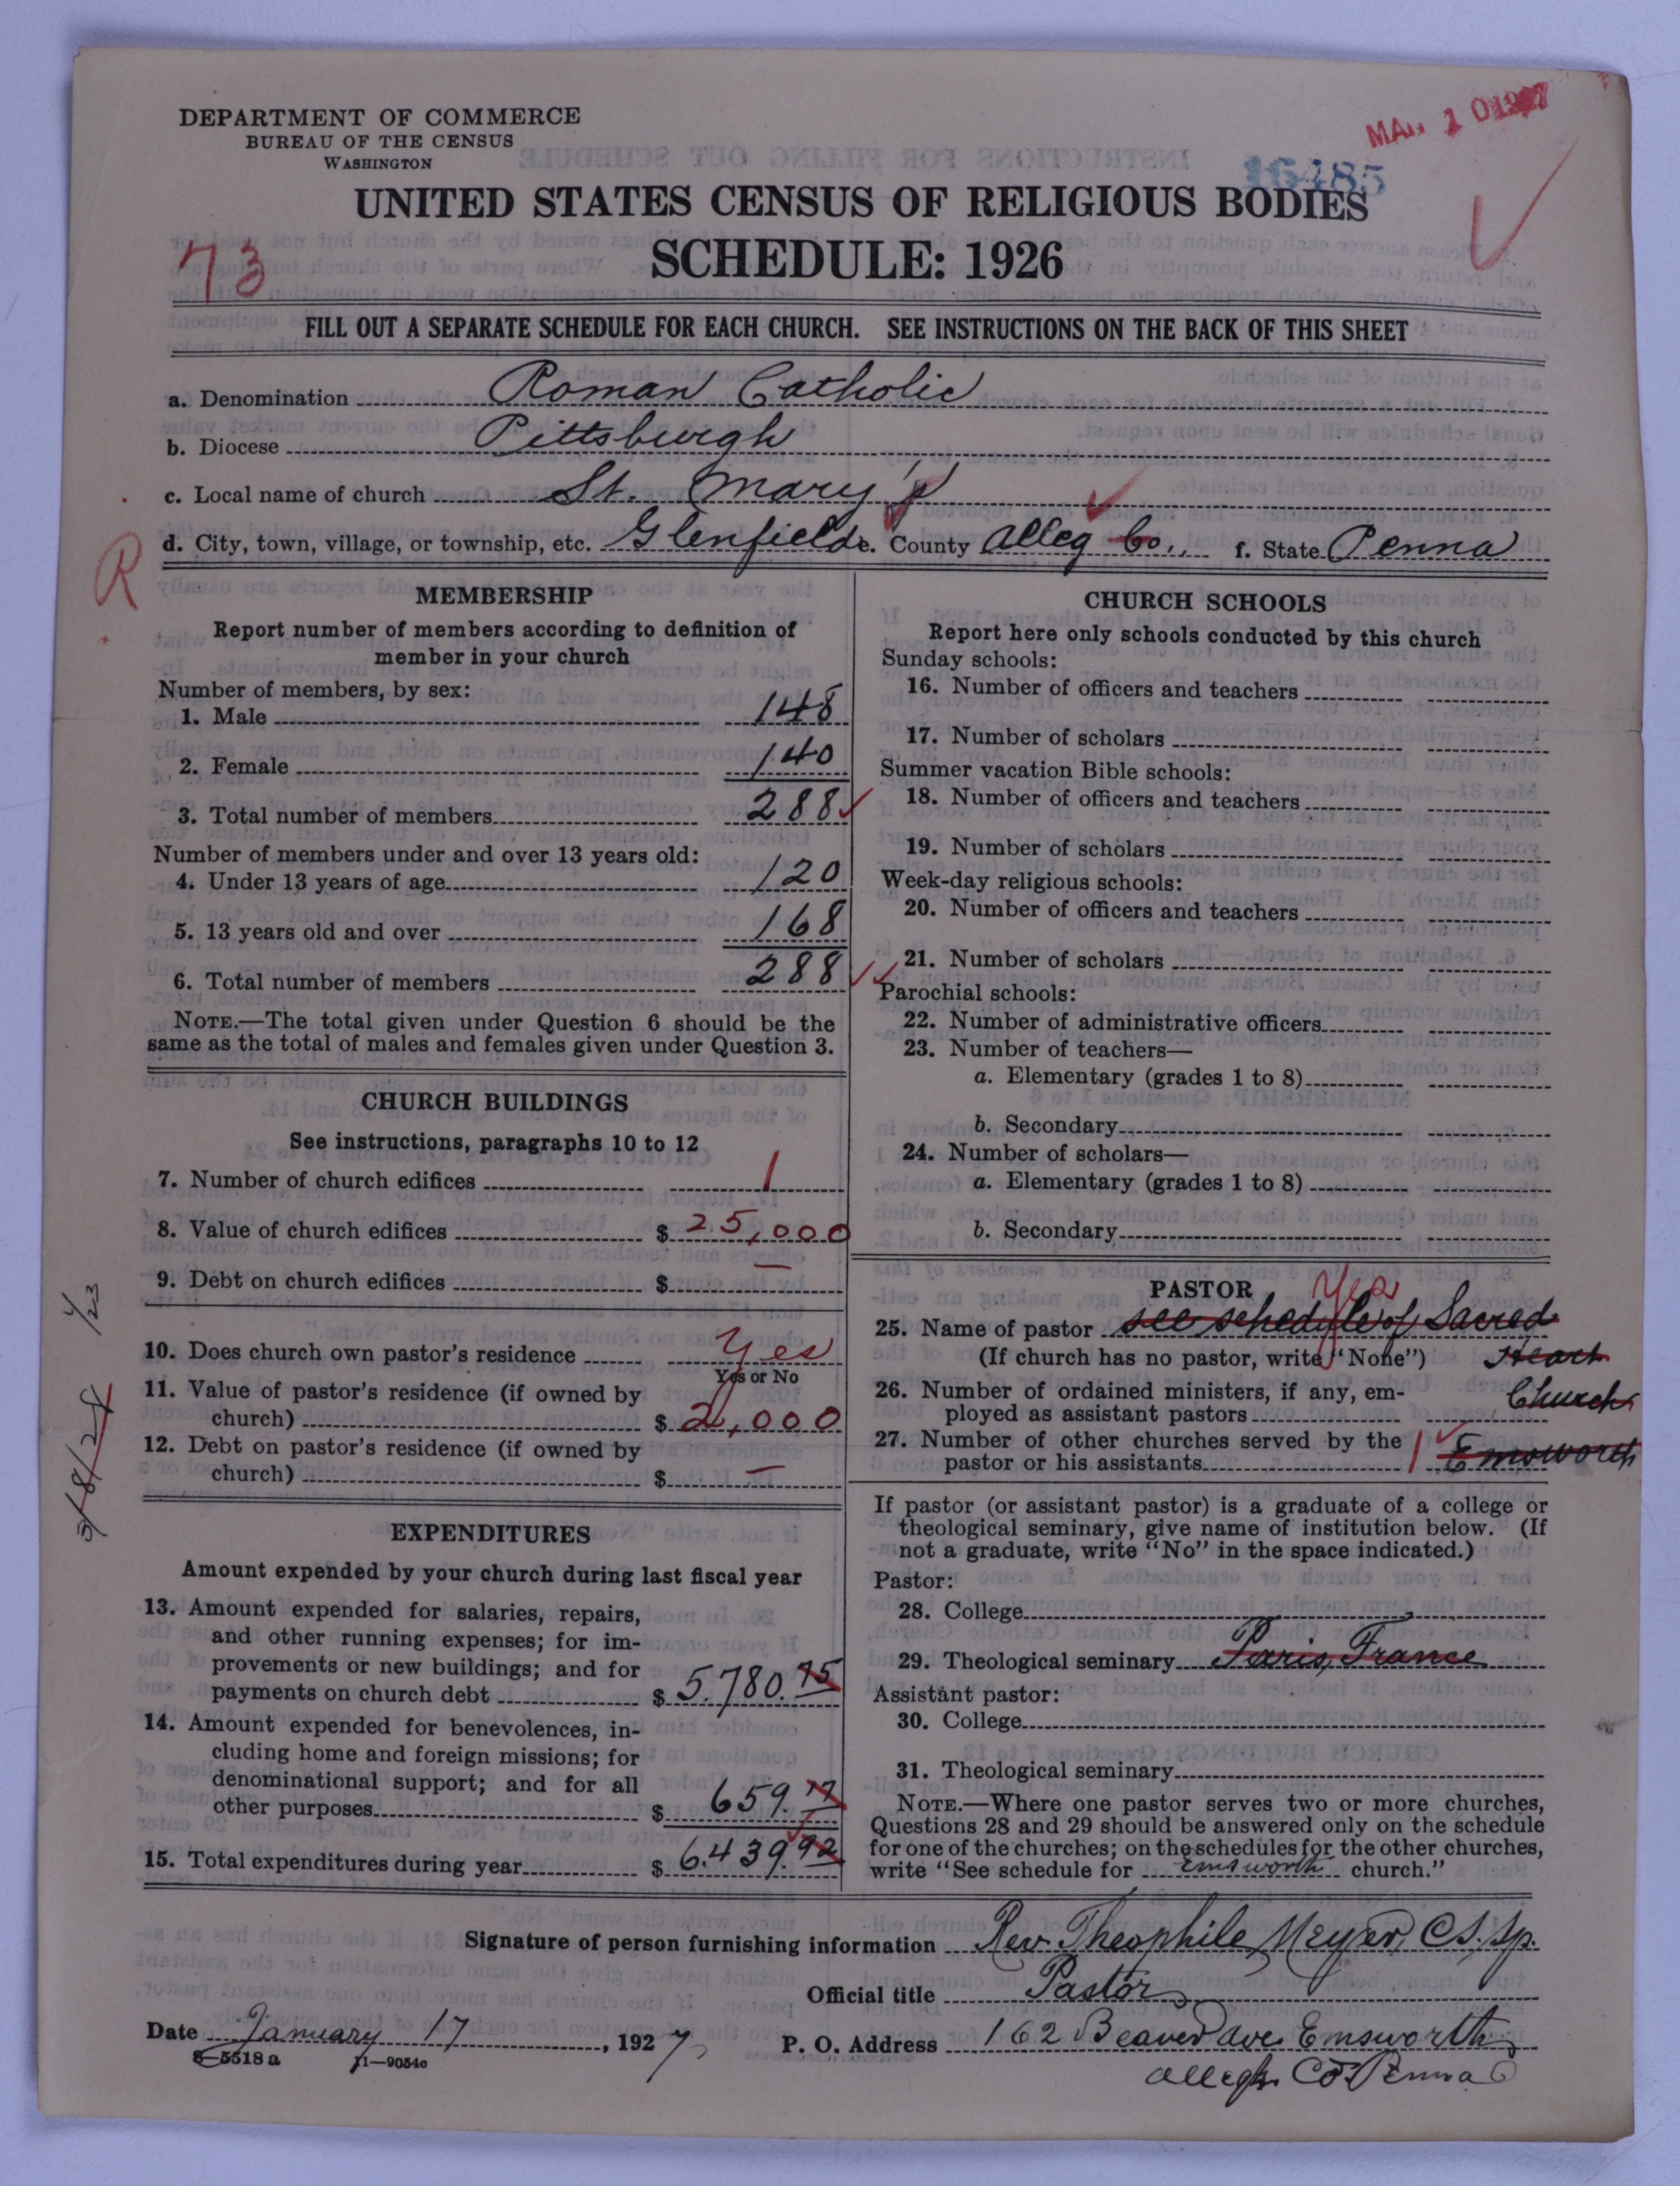 DEPARTMENT OF COMMERCE
BUREAU OF THE CENSUS
WASHINGTON
MAR 10 1927
16485
UNITED STATES CENSUS OF RELIGIOUS BODIES
SCHEDULE: 1926
73
FILL OUT A SEPARATE SCHEDULE FOR EACH CHURCH. SEE INSTRUCTIONS ON THE BACK OF THIS SHEET
a. Denomination Roman Catholic
b. Diocese Pittsburgh
c. Local name of church St. Mary's
d. City, town, village, or township, etc. Glenfield e. County Alleg Co., f. State Penna
R
MEMBERSHIP
Report number of members according to definition of
member in your church
Number of members, by sex:
1. Male 148
2. Female 140
3. Total number of members 288
Number of members under and over 13 years old:
4. Under 13 years of age 120
5. 13 years old and over 168
6. Total number of members 288
NOTE.—The total given under Question 6 should be the
same as the total of males and females given under Question 3.
CHURCH BUILDINGS
See instructions, paragraphs 10 to 12
7. Number of church edifices 1
8. Value of church edifices $ 25,000
9. Debt on church edifices $ —
10. Does church own pastor's residence Yes
Yes or No
11. Value of pastor's residence (if owned by
church) $ 2,000
12. Debt on pastor's residence (if owned by
church) $ —
4/23
3/8/28
EXPENDITURES
Amount expended by your church during last fiscal year
13. Amount expended for salaries, repairs,
and other running expenses; for im-
provements or new buildings; and for
payments on church debt $ 5.780.75
14. Amount expended for benevolences, in-
cluding home and foreign missions; for
denominational support; and for all
other purposes $ 659.17
15. Total expenditures during year $ 6.439.92
CHURCH SCHOOLS
Report here only schools conducted by this church
Sunday schools:
16. Number of officers and teachers
17. Number of scholars
Summer vacation Bible schools:
18. Number of officers and teachers
19. Number of scholars
Week-day religious schools:
20. Number of officers and teachers
21. Number of scholars
Parochial schools:
22. Number of administrative officers
23. Number of teachers—
a. Elementary (grades 1 to 8)
b. Secondary
24. Number of scholars—
a. Elementary (grades 1 to 8)
b. Secondary
PASTOR Yes
25. Name of pastor see schedule of Sacred
(If church has no pastor, write "None") Heart
26. Number of ordained ministers, if any, em-
ployed as assistant pastors Church
27. Number of other churches served by the
pastor or his assistants 1 Emsworth
If pastor (or assistant pastor) is a graduate of a college or
theological seminary, give name of institution below. (If
not a graduate, write "No" in the space indicated.)
Pastor:
28. College
29. Theological seminary Paris, France
Assistant pastor:
30. College
31. Theological seminary
NOTE.—Where one pastor serves two or more churches,
Questions 28 and 29 should be answered only on the schedule
for one of the churches; on the schedules for the other churches,
write "See schedule for Emsworth church."
Signature of person furnishing information Rev. Theophile Meyer, C.S.Sp.
Official title Pastor
Date January 17, 1927 P. O. Address 162 Beaver Ave Emsworth
8—5518 a 11—9054c
Allegh. Co. Penna